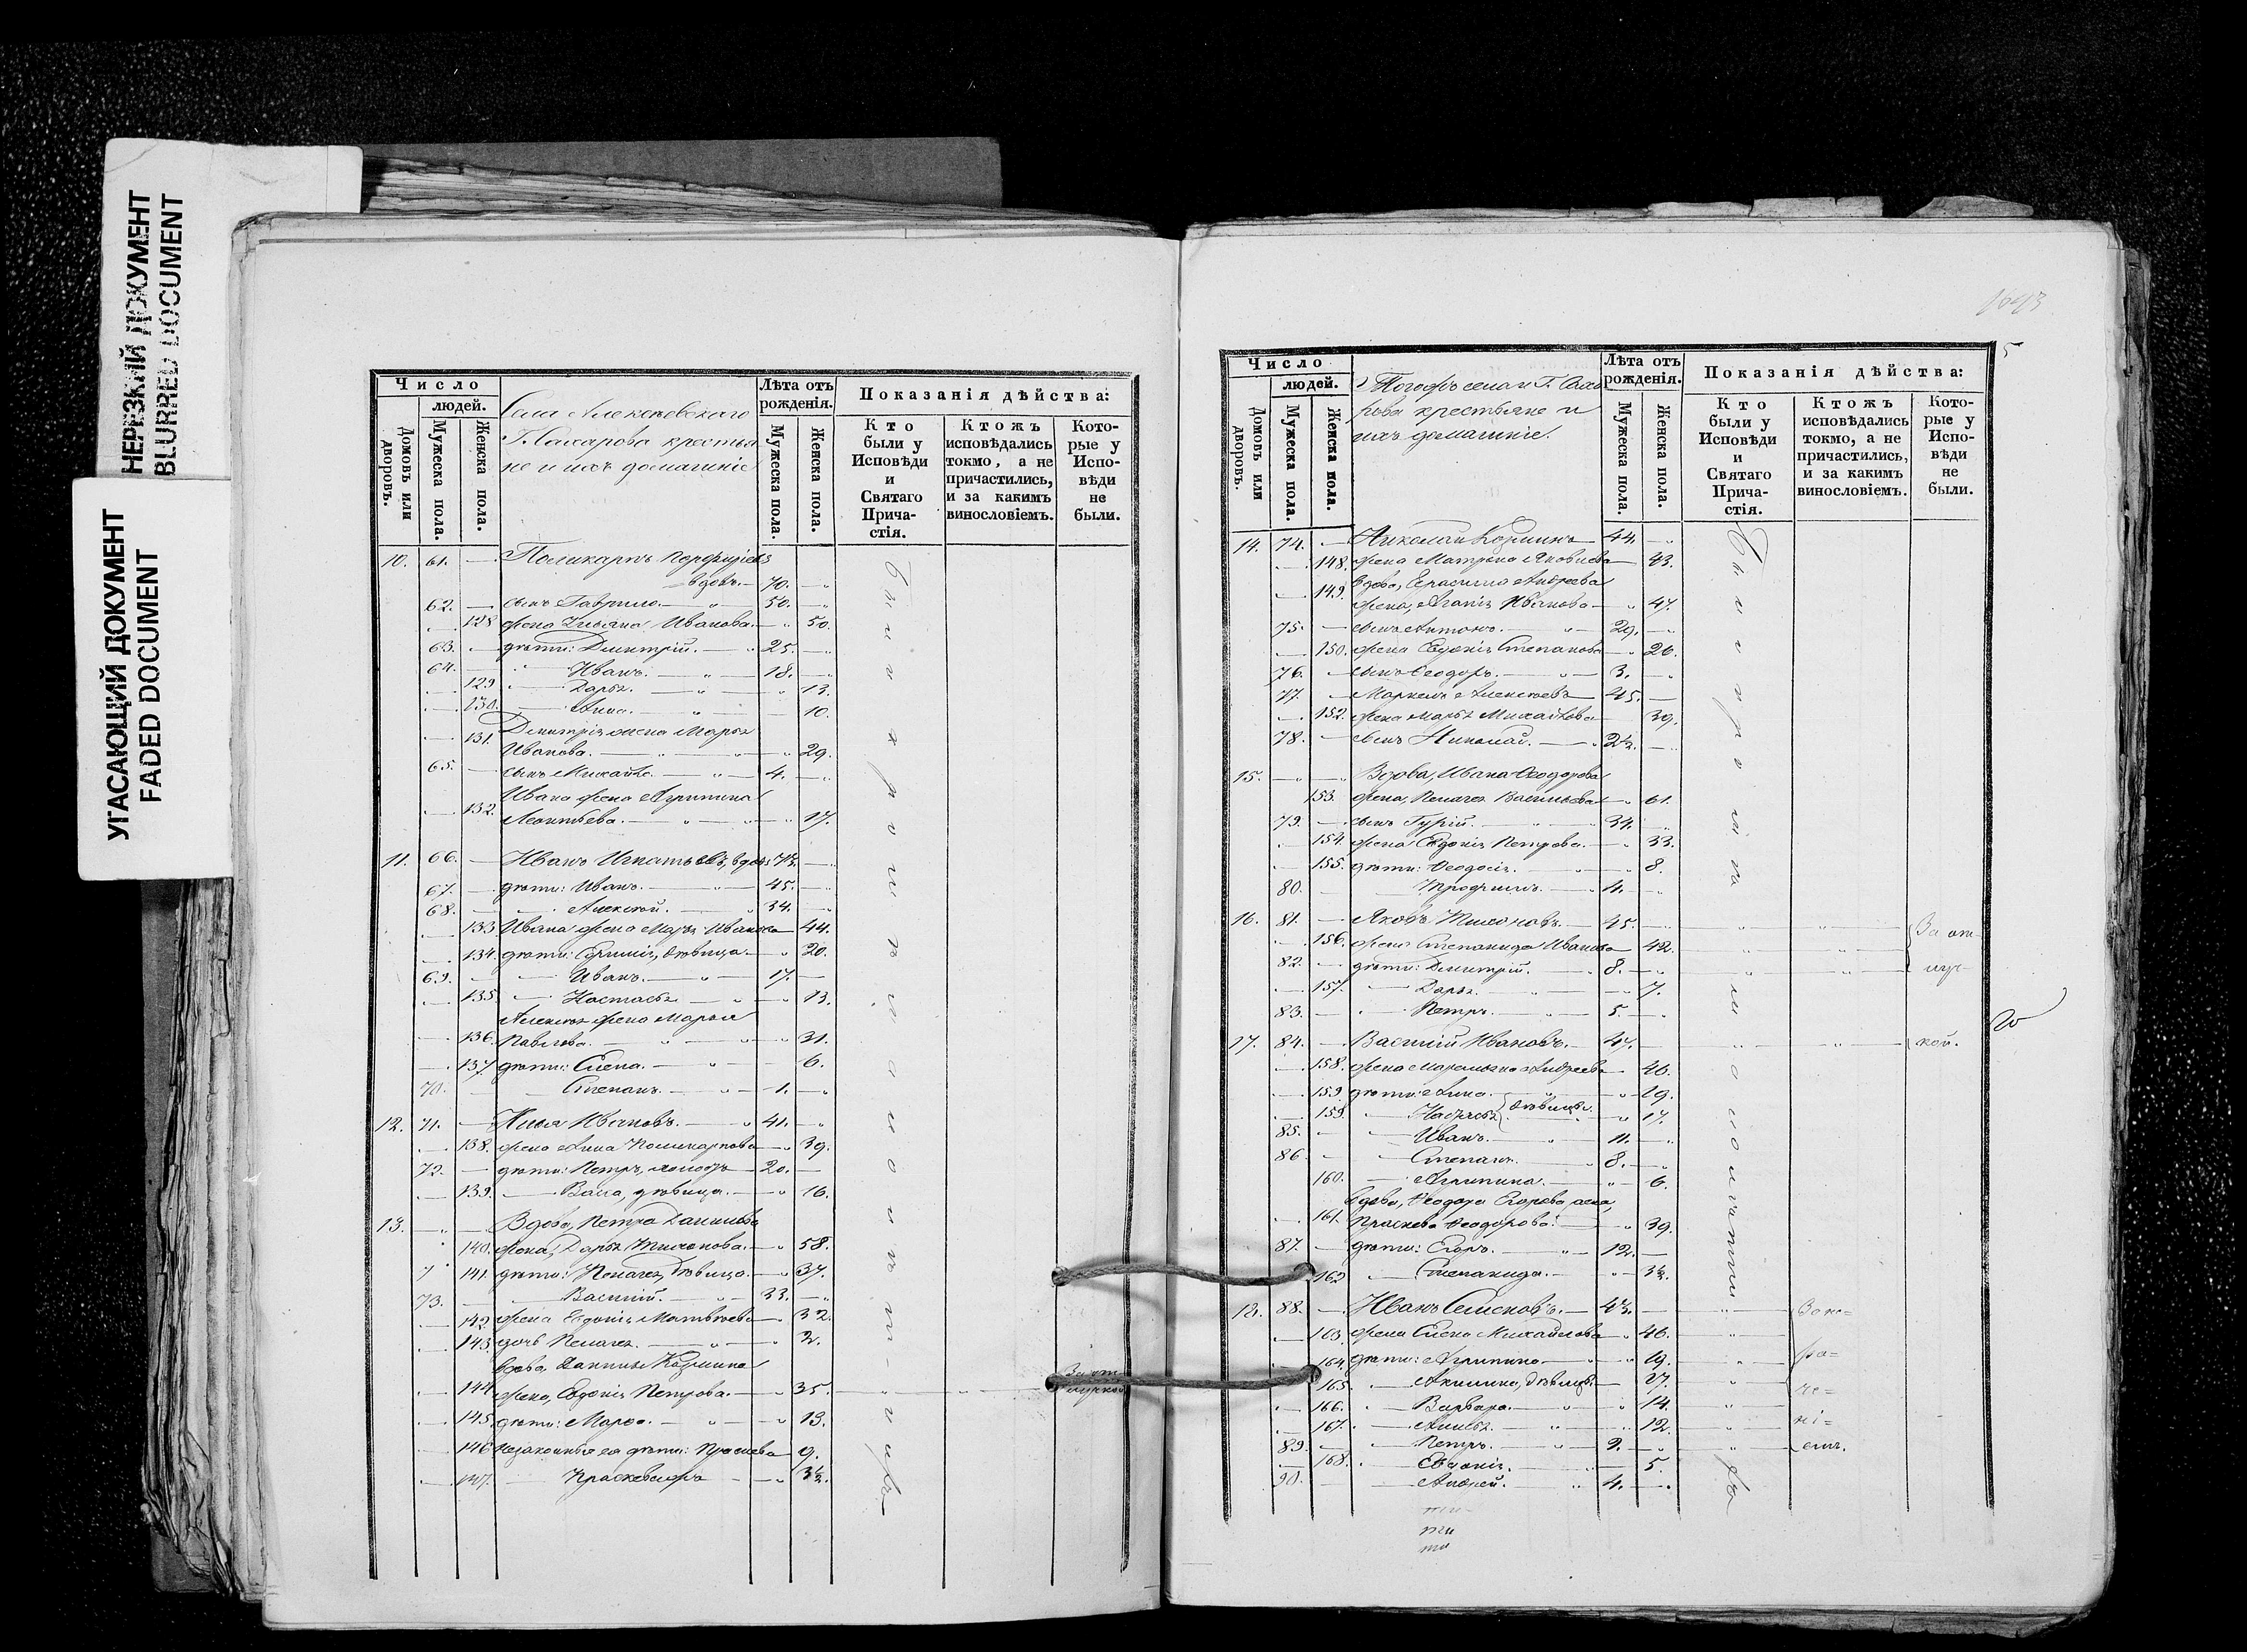 НЕРЕЗКИЙ ДОКУМЕНТ
BLURRED DOCUMENT
УГАСАЮЩИЙ ДОКУМЕНТ
FADED DOCUMENT
Число
людей.
Домовъ или дворовъ.
Мужеска пола.
Женска пола.
Села Алексеевскаго
Г. Сахарова крестья
не и ихъ домашніе
Лѣта отъ рожденія.
Мужеска пола.
Женска пола.
Показанія дѣйства:
Кто были у Исповѣди и Святаго Причастія.
Ктожъ исповѣдались токмо, а не причастились, и за какимъ винословіемъ.
Которые у Исповѣди не были.
10. 61. — Поликарпъ Перфирьевъ
вдовъ. — 70. —
62. — сынъ Гаврило. — 50. —
128 жена Ульяна Иванова. — 50.
63. — дѣти: Димитрій. — 25. —
64. — Иванъ. — 18. —
129 — Дарья. — 13.
130. — Анна. — 10.
Димитрія жена Марья
131. Иванова. — 29.
65. — сынъ Михайло. — 4. —
Ивана жена Агрипина
132. Леонтьева. — 17.
11. 66. — Иванъ Игнатьевъ, вдовъ 73. —
67. — дѣти: Иванъ. — 45. —
68. — Алексѣй. — 34. —
133 Ивана жена Марья Иванова 44.
134. дѣти: дѣвица — 20.
69. — Иванъ. — 17. —
135. — Настасья — 13.
Алексѣя жена Марья
136. Павлова. — 31.
137 дѣти: Елена. — 6.
70. — Степанъ. — 1. —
12. 71. — Илья Ивановъ. — 41. —
138. жена Анна Поликарпова — 39.
72. — дѣти: Петръ, холостъ — 20. —
139. — Васса, дѣвица. — 16.
13. — Вдова, Петра Данилова
140. жена, Дарья Тихонова. — 58.
141. дѣти: Пелагея, дѣвица. — 37.
73. — Василий. — 33. —
142 жена Евдокія Матвѣева — 32
143. дочь Пелагея — 2.
Вдова Данилы Кузмина
144 жена, Евдокія Петрова. — 35. — За отлучкой
145. дѣти: Марфа. — 13.
146 незаконные ея дѣти: — 9.
147. — 3½.
Число
людей.
Домовъ или дворовъ.
Мужеска пола.
Женска пола.
крестьяне и
ихъ домашніе.
Лѣта отъ рожденія.
Мужеска пола.
Женска пола.
Показанія дѣйства:
Кто были у Исповѣди и Святаго Причастія.
Ктожъ исповѣдались токмо, а не причастились, и за какимъ винословіемъ.
Которые у Исповѣди не были.
5
14. 74. — Николай Кузминъ — 44. —
148. жена Матрена Яковлева — 43.
Вдова, Герасима Андреева
149. жена, Агапія Иванова — 47.
75. — сынъ Антонъ. — 29. —
150. жена Евдокія Степанова — 26.
76. — сынъ Ѳеодоръ. — 3. —
77. — Маркелъ Алексѣевъ — 45. —
152. жена Марья Михайлова — 39.
78. — сынъ Николай. — 2½. —
15. — Вдова, Ивана Ѳеодорова
153. жена, Пелагея Васильева — 61.
79. — сынъ Гурій. — 34. —
154. жена Евдокія Петрова. — 33.
155. дѣти: Ѳеодосія. — 8.
80. — Трофимъ. — 4. —
16. 81. — Яковъ Тихоновъ. — 45. — За от
156. жена Степанида Иванова — 42.
82. — дѣти: Димитрій. — 8. — луч
157. — Дарья. — 7.
83. — Петръ. — 5. —
17. 84. — Василій Ивановъ. — 47. — кой.
158. жена Маремьяна Андреева — 46.
159 дѣти: Анна. — 19.
159. — Настасья дѣвицы. — 17.
85. — Иванъ. — 11. —
86. — Степанъ. — 8. —
160. — Агрипина. — 6.
Вдова, Ѳеодора Егорова жена,
161. Прасковья Ѳеодорова. — 39.
87. — дѣти: Егоръ. — 12. —
162 — Степанида. — 3½.
18. 88. — Иванъ Семеновъ. — 47. —
163. жена Елена Михайлова — 46.
164. дѣти: Агрипина — 19.
165. — Акилина, дѣвицы — 17.
166. — Варвара. — 14.
167. — 12.
89. — Петръ. — 9. —
168. — Евдокія. — 5.
90. — Андрей. — 4. —